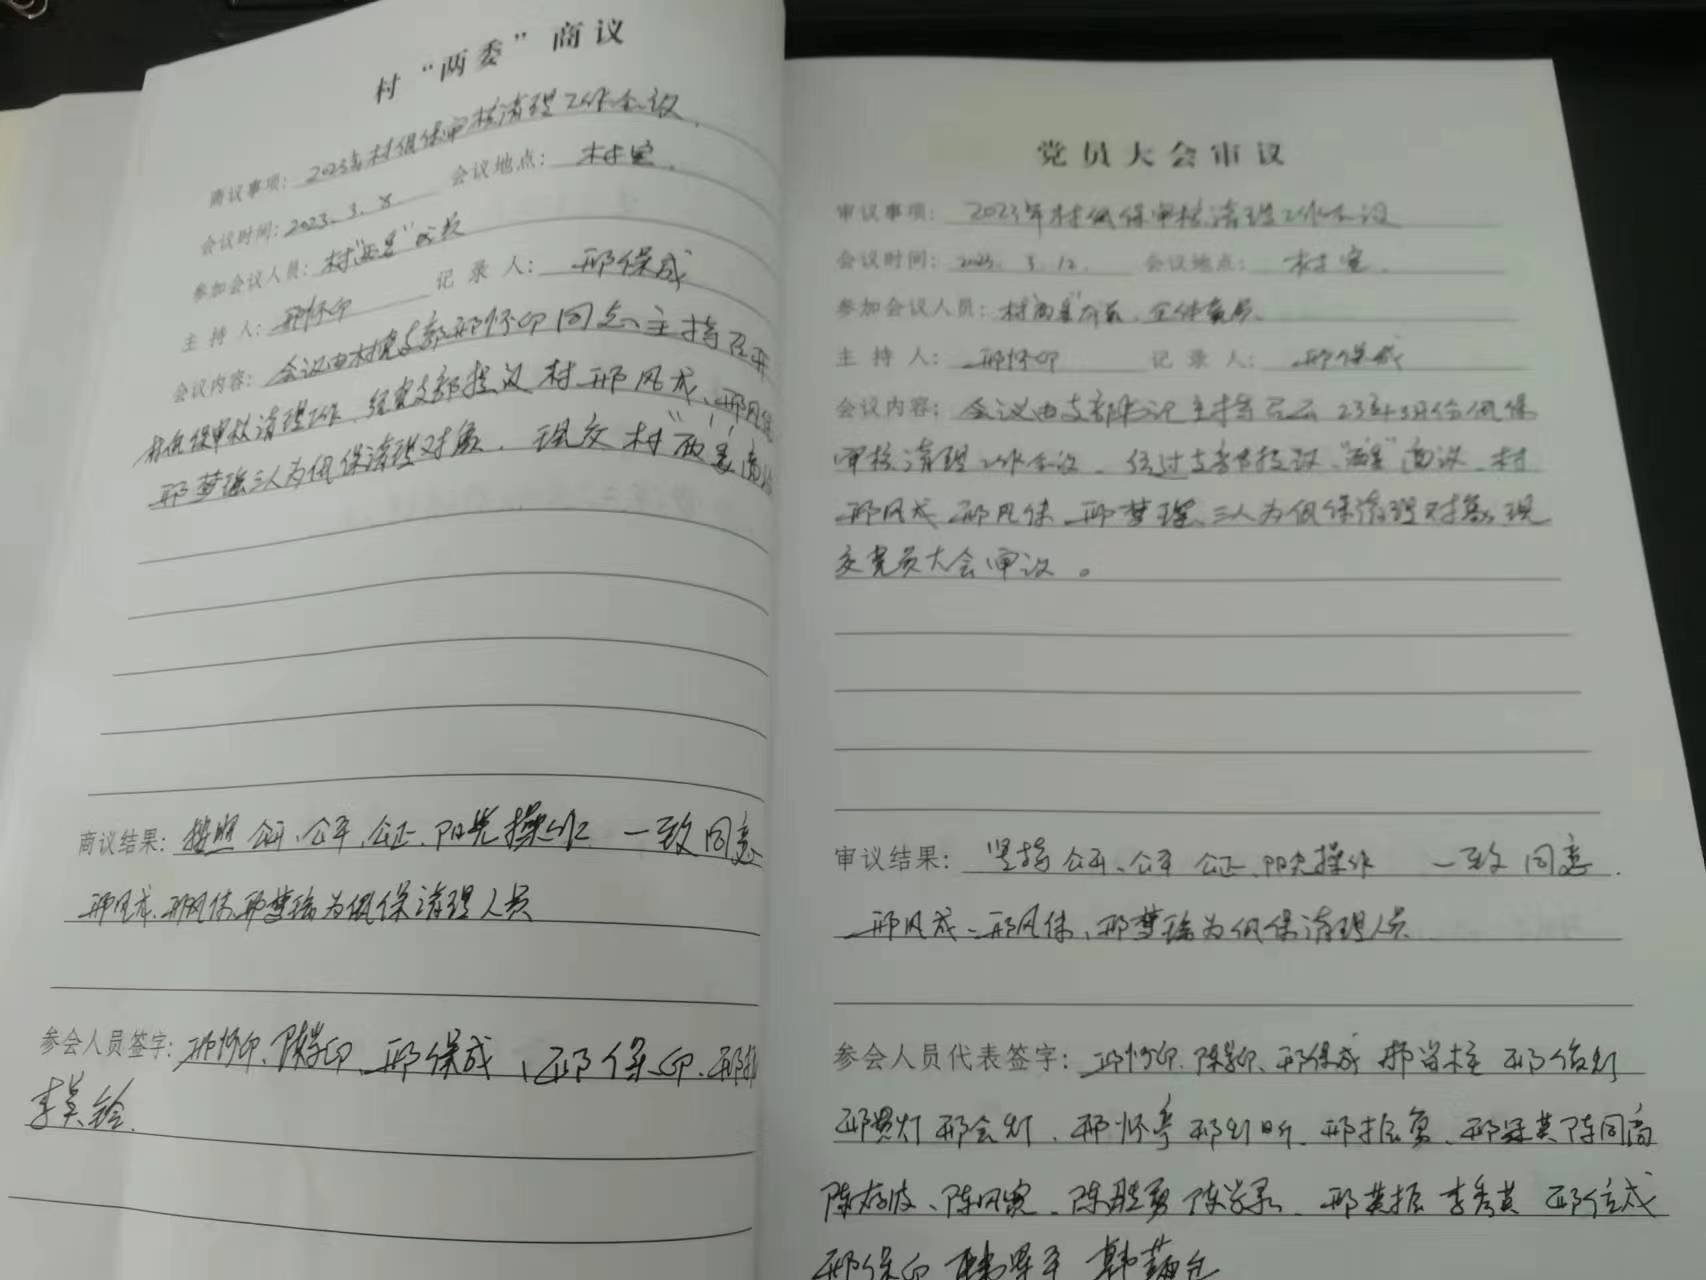 村“两委”商议
商议事项：2023年村低保审核清理工作会议
会议时间：2023.3.8 会议地点：村室.
参加会议人员：村“两委”成员
主持人：邢怀印 记录人：邢保成
会议内容：会议由村党支部邢怀印同志主持召开
村低保审核清理工作，经党支部提议村邢风成、邢风保
邢梦瑶三人为低保清理对象，现交村“两委”商议
商议结果：按照公开、公平、公正、阳光操作 一致同意
邢风成、邢风保、邢梦瑶为低保清理人员
参会人员签字：邢怀印、陈学印、邢保成、邢保印、邢
李英铃
党员大会审议
审议事项：2023年村低保审核清理工作会议
会议时间：2023.3.12. 会议地点：村室.
参加会议人员：村“两委”成员、全体党员、
主持人：邢怀印 记录人：邢保成
会议内容：会议由支部书记主持召开23年3月份低保
审核清理工作会议，经过支部提议、“两委”商议，村
邢风成 邢风保 邢梦瑶、三人为低保清理对象，现
交党员大会审议。
审议结果：坚持公开、公平 公正、阳光操作 一致同意.
邢风成、邢风保、邢梦瑶为低保清理人员
参会人员代表签字：邢怀印、陈学印、邢保成 邢 柱 邢 灯
邢贯灯 邢会灯、邢怀 邢灯 、邢振 、邢 英 陈同
陈存 、陈风 、陈胜勇 陈 、邢英振 李秀英 邢 成
邢保印